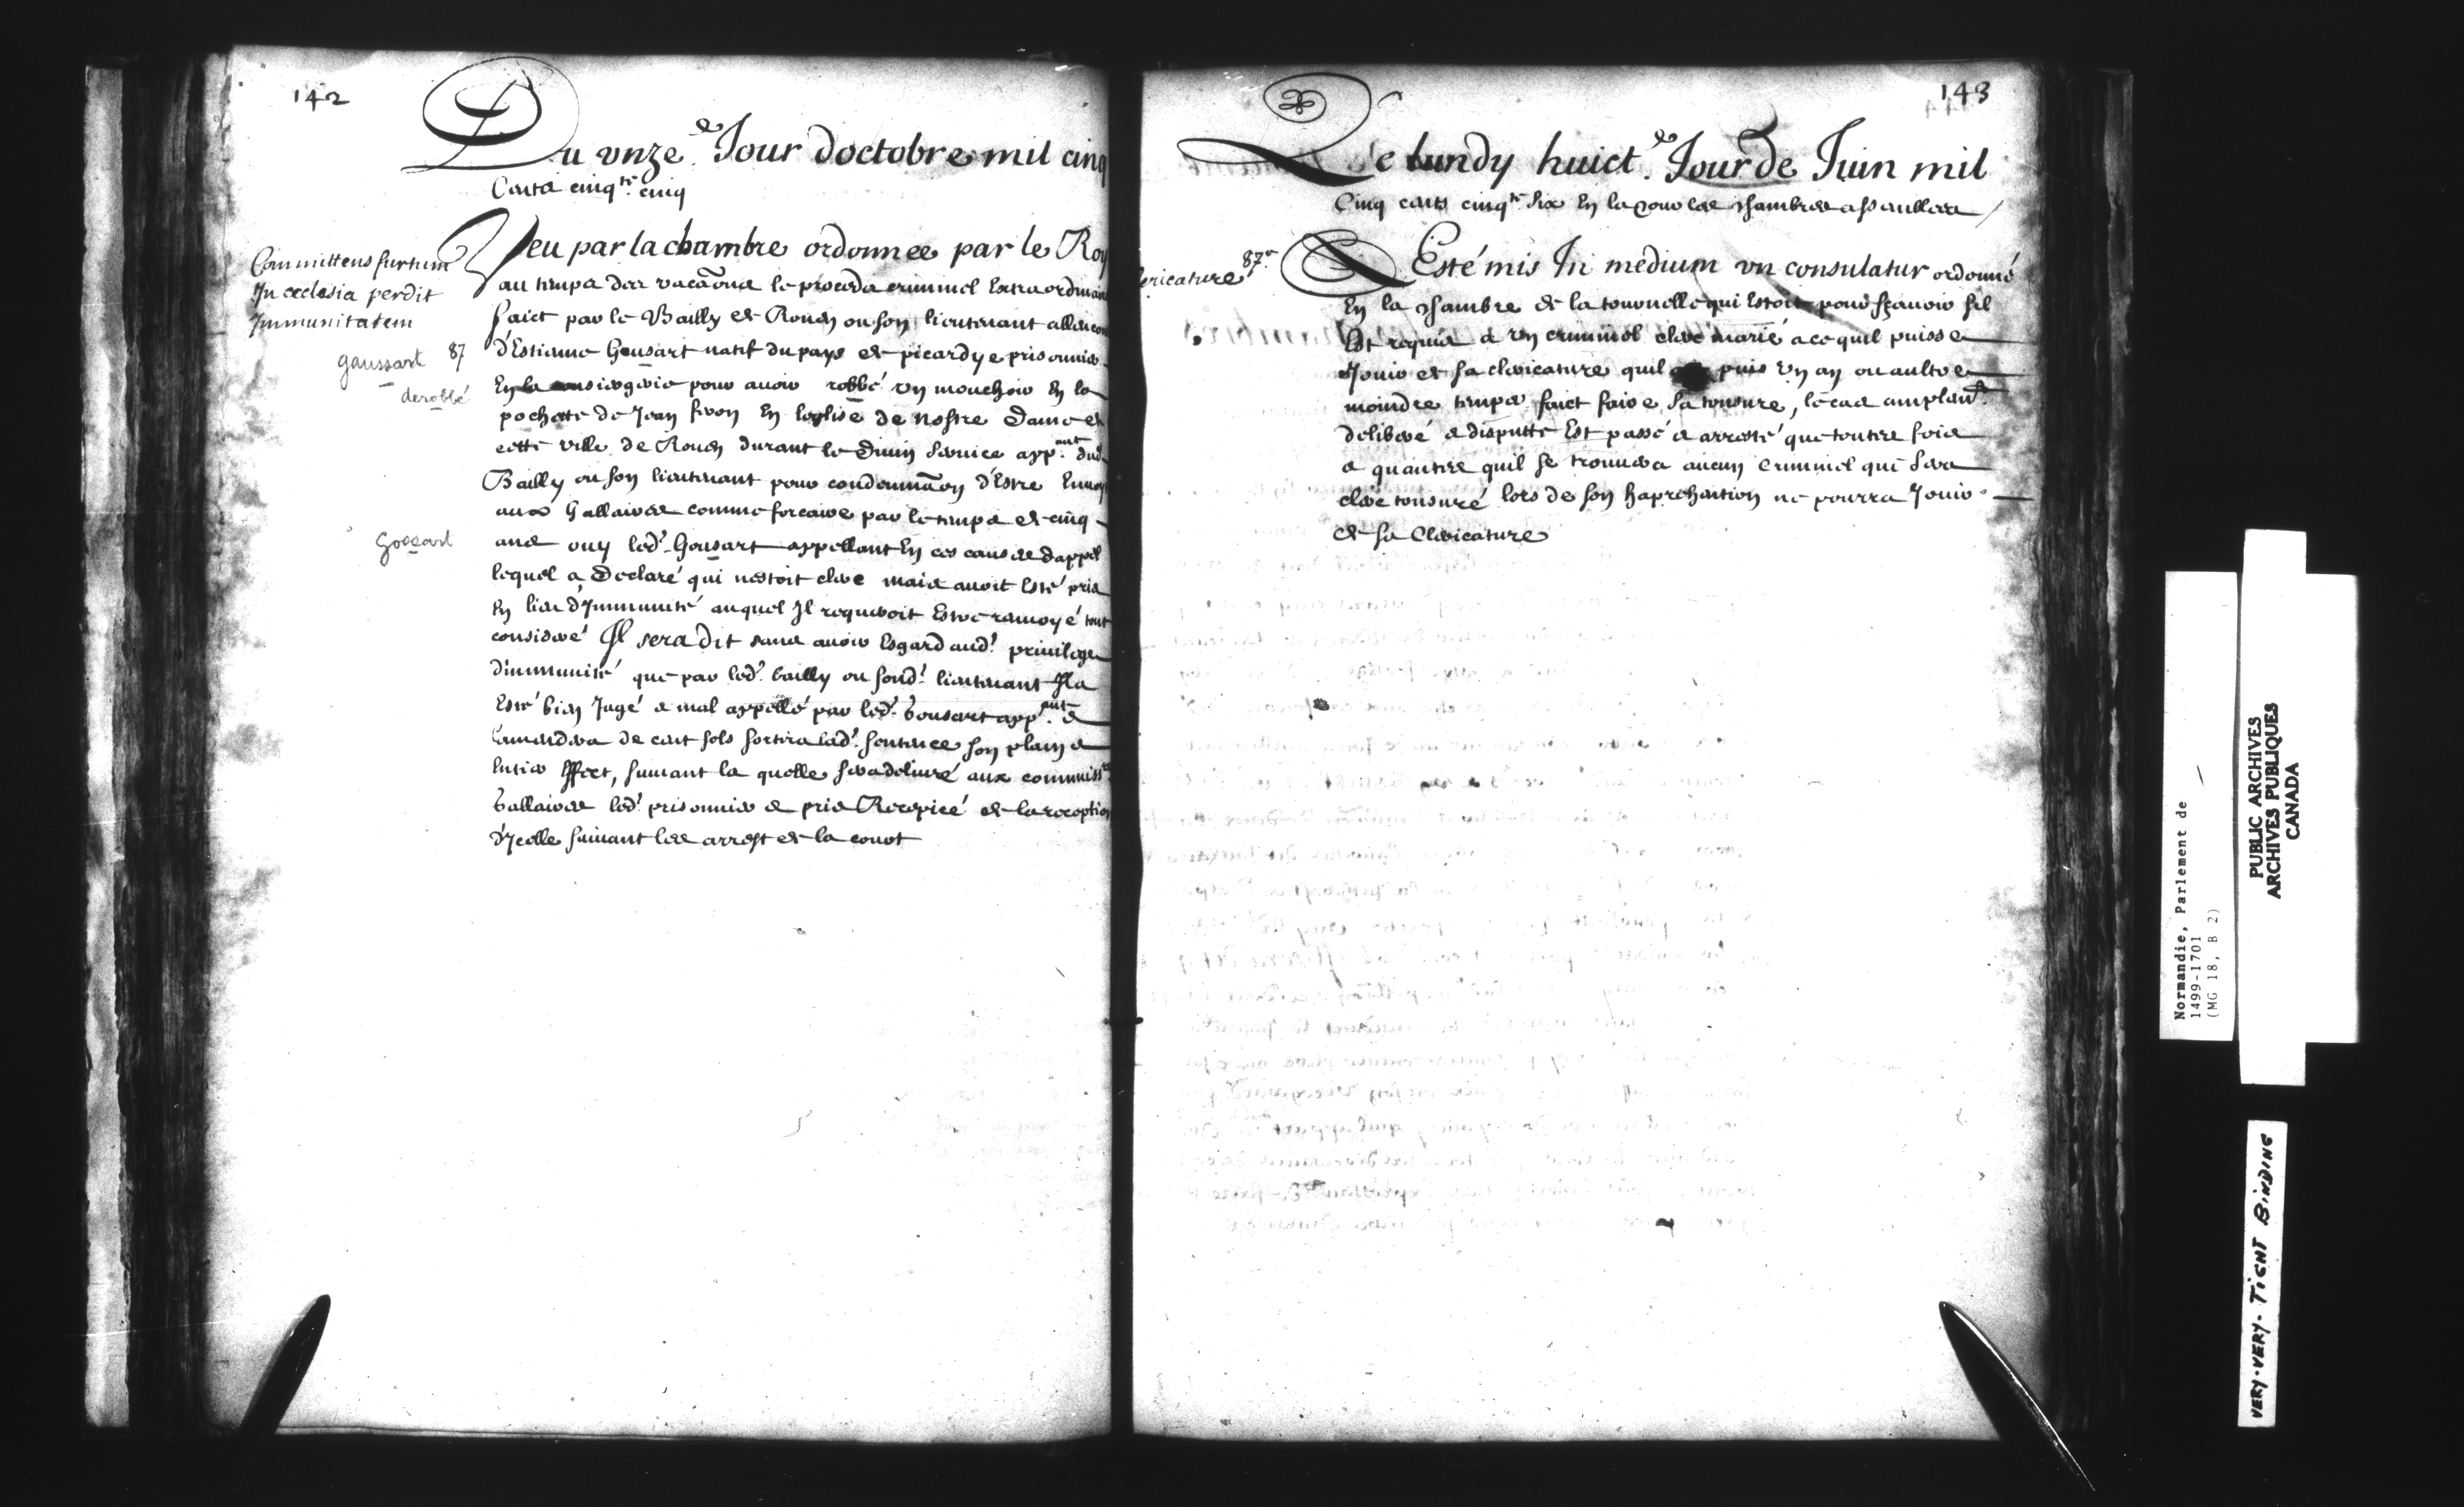 142
Du unze.e Jour doctobre mil cinq
Cents cinq.te cinq
Committens furtum
In ecclesia perdit
Immunitatem
gaussart 87
derobbé
gossart
Veu par la chambre ordonnee par le Roy
au temps des vacãons le proces criminel Extraordinaire
faict par le Bailly de Rouen ou son lieutenant
d'Estienne Gousart natif du pays de picardye prisonnier
En la consiergerie pour avoir robbé un mouchoir En la
pochette de Jean En leglise de nostre Dame de
cette ville de Rouen durant le Divin service app.ant dud.
Bailly ou son lieutenant pour condemnãon d'Estre Envoyé
aux Gallaires comme forcaire par le temps de cinq
ans ouy led. Gousart appellant En ces causes dappel
lequel a Declaré qui nestoit clerc mais avoit Esté pris
En lieu d'Immunité auquel Il requeroit Estre renvoyé tout
consideré Il sera dit sans avoir Esgard aud. privilege
dimmunité que par led. bailly ou sond. lieutenant Il a
Esté bien Jugé & mal appellé par led. Gousart app.ant &
lamendera de cent sols sortira lad. sentence son plain &
Entier Effect, suivant la quelle sera delivré aux commiss.res
Gallaires led. prisonnier & pris Recepicé de la reception
d'Icelle suivant les arrest de la court
143
Le lundy huict.e Jour de Juin mil
Cinq cents cinq.te six En la cour les chambres assembleez
clericature 87.v
A Esté mis In medium un consulatur ordonné
En la chambre de la tournelle qui Estoit pour sçavoir sil
Est requis a un criminel clerc marié a ce quil puisse
Jouir de sa clericature quil puis un an ou aultre
moindre temps faict faire sa tonsure, le cas amplem.t
deliberé & disputté Est passé & arresté que toutes fois
& quantes quil se trouvera aucun criminel qui sera
clerc tonsuré lors de son haprehention ne pourra Jouir
de sa Clericature
Normandie, Parlement de
1499-1701
(MG 18, B 2)
PUBLIC ARCHIVES
ARCHIVES PUBLIQUES
CANADA
VERY-VERY-TIGHT BINDING